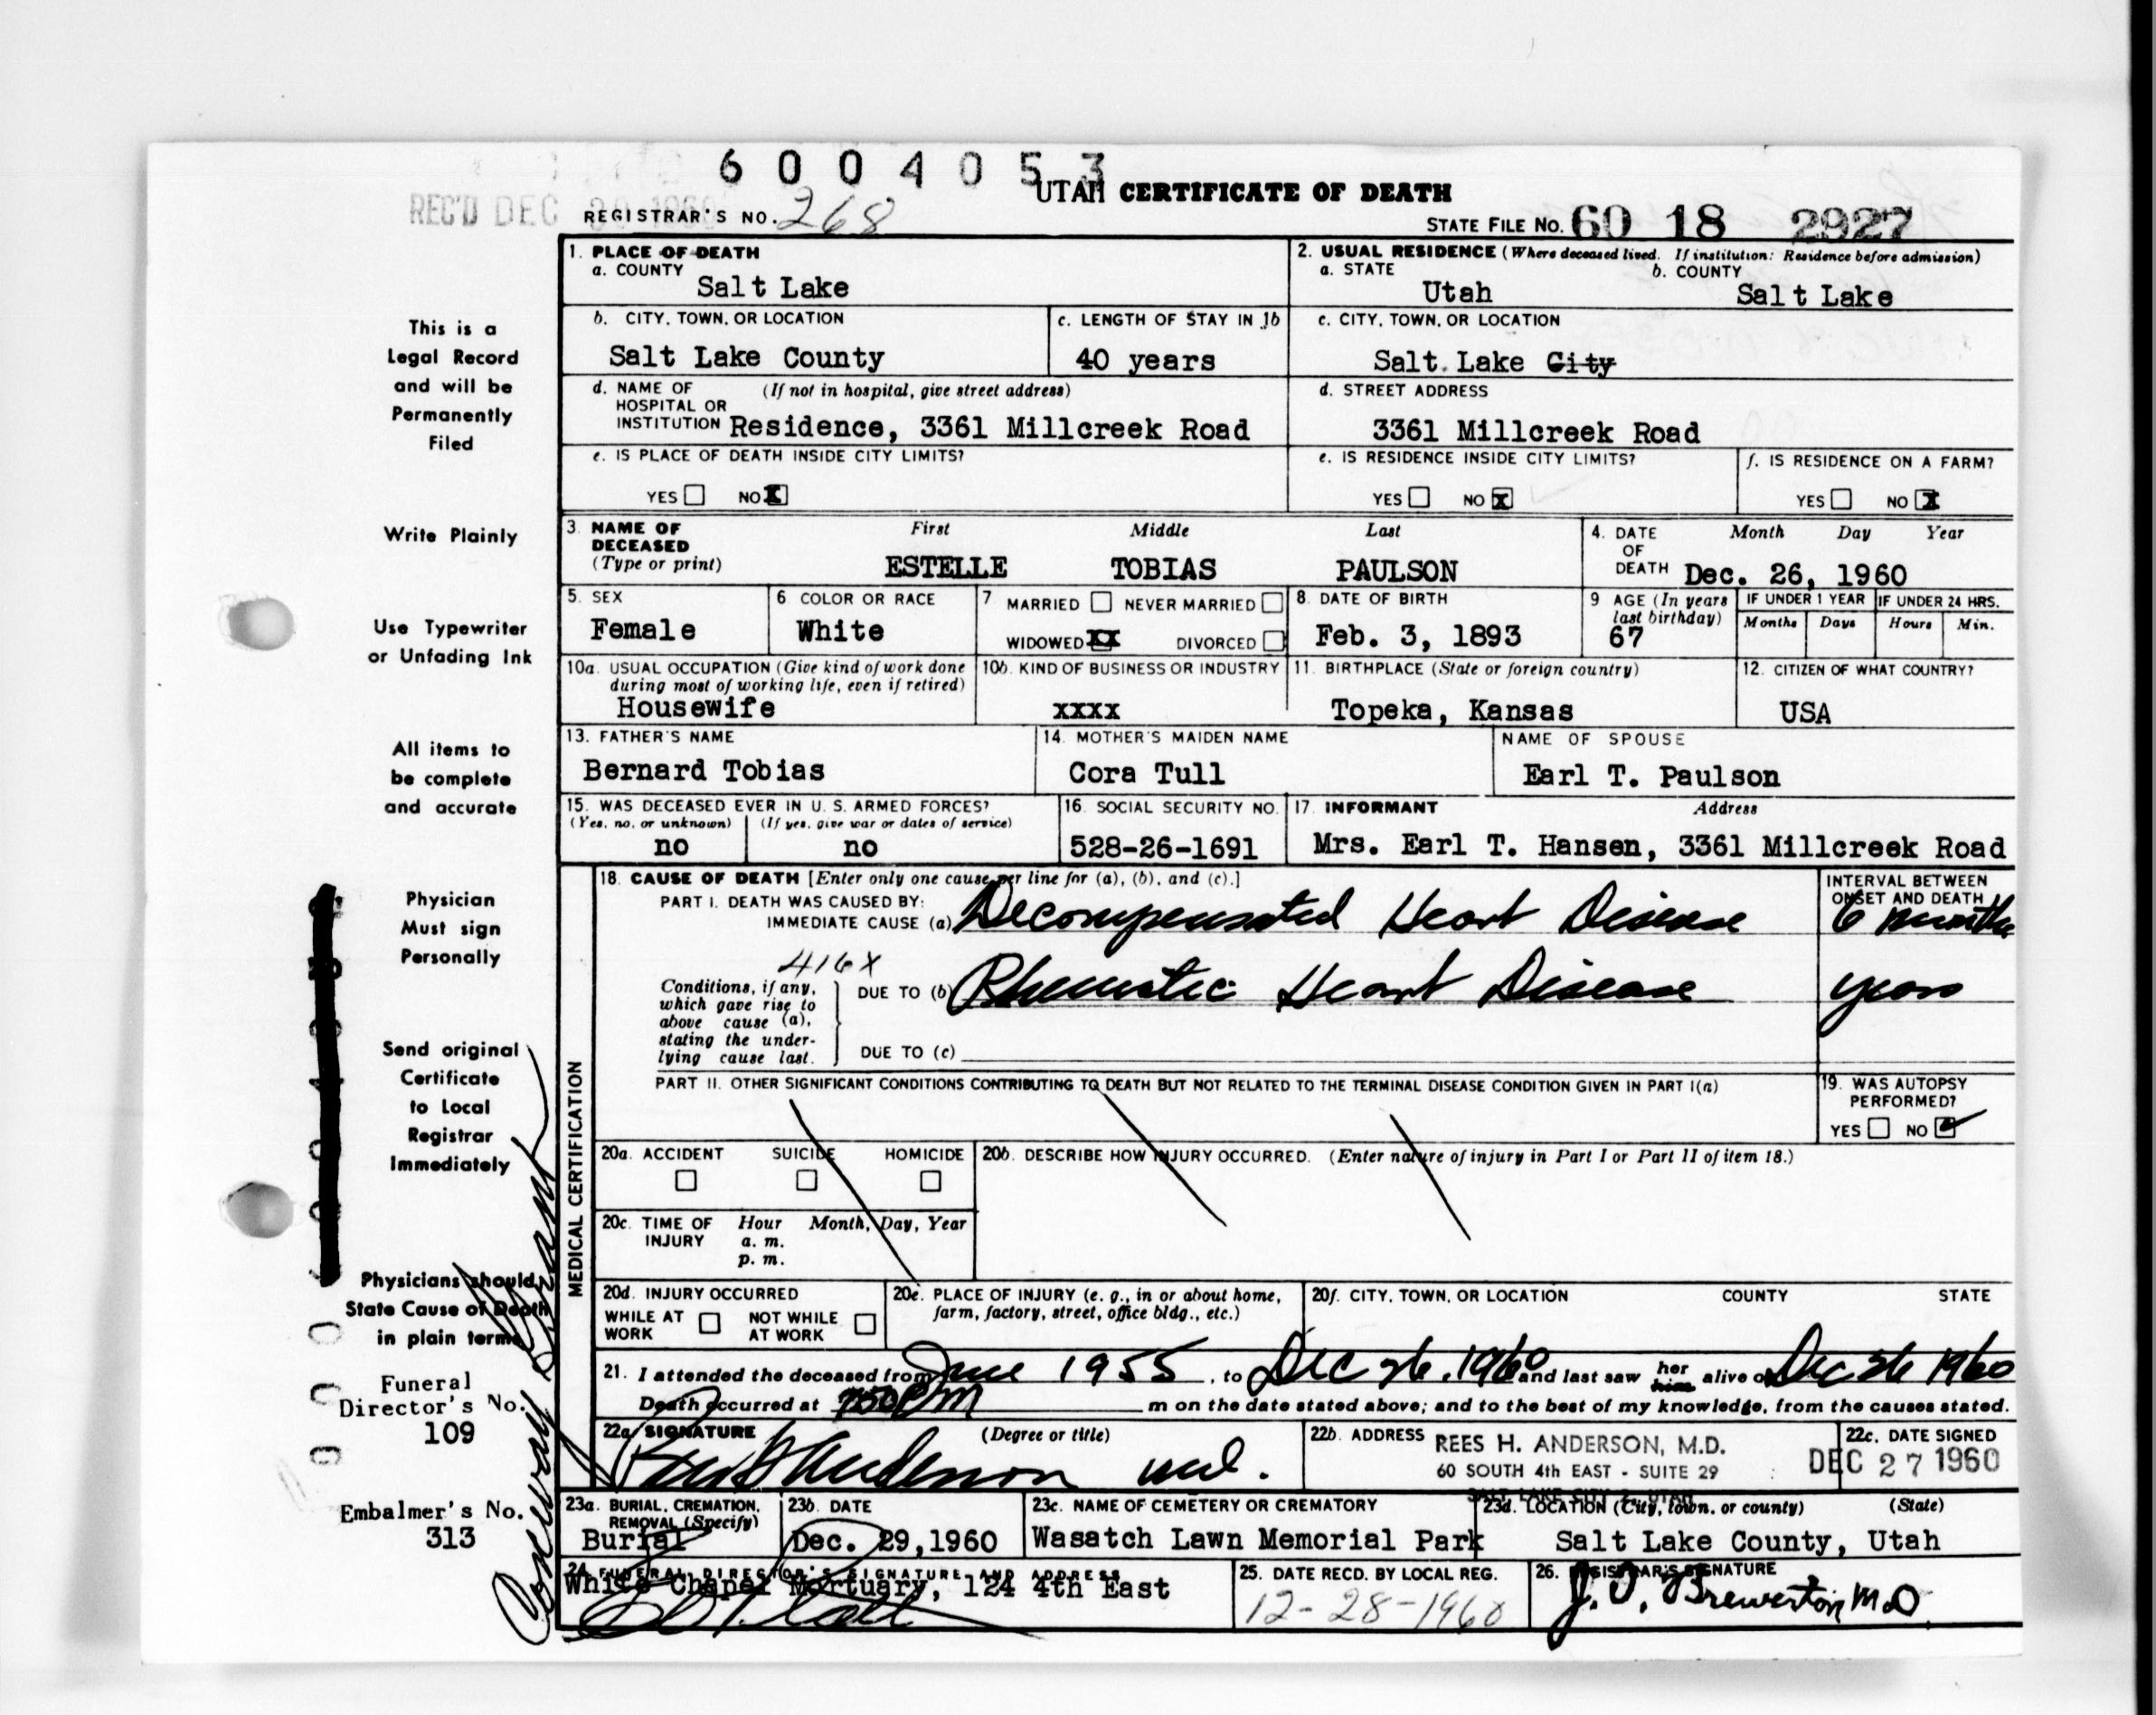 6004053
REC'D DEC 30 1960
UTAH CERTIFICATE OF DEATH
REGISTRAR'S NO. 268
STATE FILE NO. 60 18 2927
1. PLACE OF DEATH
a. COUNTY
Salt Lake
2. USUAL RESIDENCE (Where deceased lived. If institution: Residence before admission)
a. STATE b. COUNTY
Utah Salt Lake
b. CITY, TOWN, OR LOCATION
Salt Lake County
c. LENGTH OF STAY IN 1b
40 years
c. CITY, TOWN, OR LOCATION
Salt Lake City
d. NAME OF (If not in hospital, give street address)
HOSPITAL OR
INSTITUTION Residence, 3361 Millcreek Road
d. STREET ADDRESS
3361 Millcreek Road
e. IS PLACE OF DEATH INSIDE CITY LIMITS?
YES NO X
e. IS RESIDENCE INSIDE CITY LIMITS?
YES NO X
f. IS RESIDENCE ON A FARM?
YES NO X
3. NAME OF First Middle Last
DECEASED
(Type or print) ESTELLE TOBIAS PAULSON
4. DATE Month Day Year
OF
DEATH Dec. 26, 1960
5. SEX
Female
6 COLOR OR RACE
White
7 MARRIED NEVER MARRIED
WIDOWED XX DIVORCED
8. DATE OF BIRTH
Feb. 3, 1893
9 AGE (In years
last birthday)
67
IF UNDER 1 YEAR IF UNDER 24 HRS.
Months Days Hours Min.
10a. USUAL OCCUPATION (Give kind of work done
during most of working life, even if retired)
Housewife
10b. KIND OF BUSINESS OR INDUSTRY
xxxx
11. BIRTHPLACE (State or foreign country)
Topeka, Kansas
12. CITIZEN OF WHAT COUNTRY?
USA
13. FATHER'S NAME
Bernard Tobias
14. MOTHER'S MAIDEN NAME
Cora Tull
NAME OF SPOUSE
Earl T. Paulson
15. WAS DECEASED EVER IN U. S. ARMED FORCES?
(Yes, no, or unknown) (If yes, give war or dates of service)
no no
16. SOCIAL SECURITY NO.
528-26-1691
17. INFORMANT Address
Mrs. Earl T. Hansen, 3361 Millcreek Road
MEDICAL CERTIFICATION
18. CAUSE OF DEATH [Enter only one cause per line for (a), (b), and (c).]
PART I. DEATH WAS CAUSED BY:
IMMEDIATE CAUSE (a) Decompensated Heart Disease
INTERVAL BETWEEN
ONSET AND DEATH
6 months
416X
Conditions, if any,
which gave rise to
above cause (a),
stating the under-
lying cause last.
DUE TO (b) Rheumatic Heart Disease
years
DUE TO (c)
PART II. OTHER SIGNIFICANT CONDITIONS CONTRIBUTING TO DEATH BUT NOT RELATED TO THE TERMINAL DISEASE CONDITION GIVEN IN PART I(a)
19. WAS AUTOPSY
PERFORMED?
YES NO ✓
20a. ACCIDENT SUICIDE HOMICIDE
20b. DESCRIBE HOW INJURY OCCURRED. (Enter nature of injury in Part I or Part II of item 18.)
20c. TIME OF Hour Month, Day, Year
INJURY a. m.
p. m.
20d. INJURY OCCURRED
WHILE AT NOT WHILE
WORK AT WORK
20e. PLACE OF INJURY (e. g., in or about home,
farm, factory, street, office bldg., etc.)
20f. CITY, TOWN, OR LOCATION COUNTY STATE
21. I attended the deceased from June 1955, to Dec 26, 1960 and last saw her him alive on Dec 26 1960
Death occurred at 750 PM m on the date stated above; and to the best of my knowledge, from the causes stated.
22a. SIGNATURE (Degree or title)
Rees H Anderson md.
22b. ADDRESS REES H. ANDERSON, M.D.
60 SOUTH 4th EAST - SUITE 29
SALT LAKE CITY 2, UTAH
22c. DATE SIGNED
DEC 27 1960
23a. BURIAL, CREMATION,
REMOVAL (Specify)
Burial
23b. DATE
Dec. 29,1960
23c. NAME OF CEMETERY OR CREMATORY
Wasatch Lawn Memorial Park
23d. LOCATION (City, town, or county) (State)
Salt Lake County, Utah
24. FUNERAL DIRECTOR'S SIGNATURE AND ADDRESS
White Chapel Mortuary, 124 4th East
25. DATE RECD. BY LOCAL REG.
12-28-1960
26. REGISTRAR'S SIGNATURE
J. O. Brewerton, M.D.
This is a
Legal Record
and will be
Permanently
Filed
Write Plainly
Use Typewriter
or Unfading Ink
All items to
be complete
and accurate
Physician
Must sign
Personally
Send original
Certificate
to Local
Registrar
Immediately
Physicians should
State Cause of Death
in plain terms
Funeral
Director's No.
109
Embalmer's No.
313